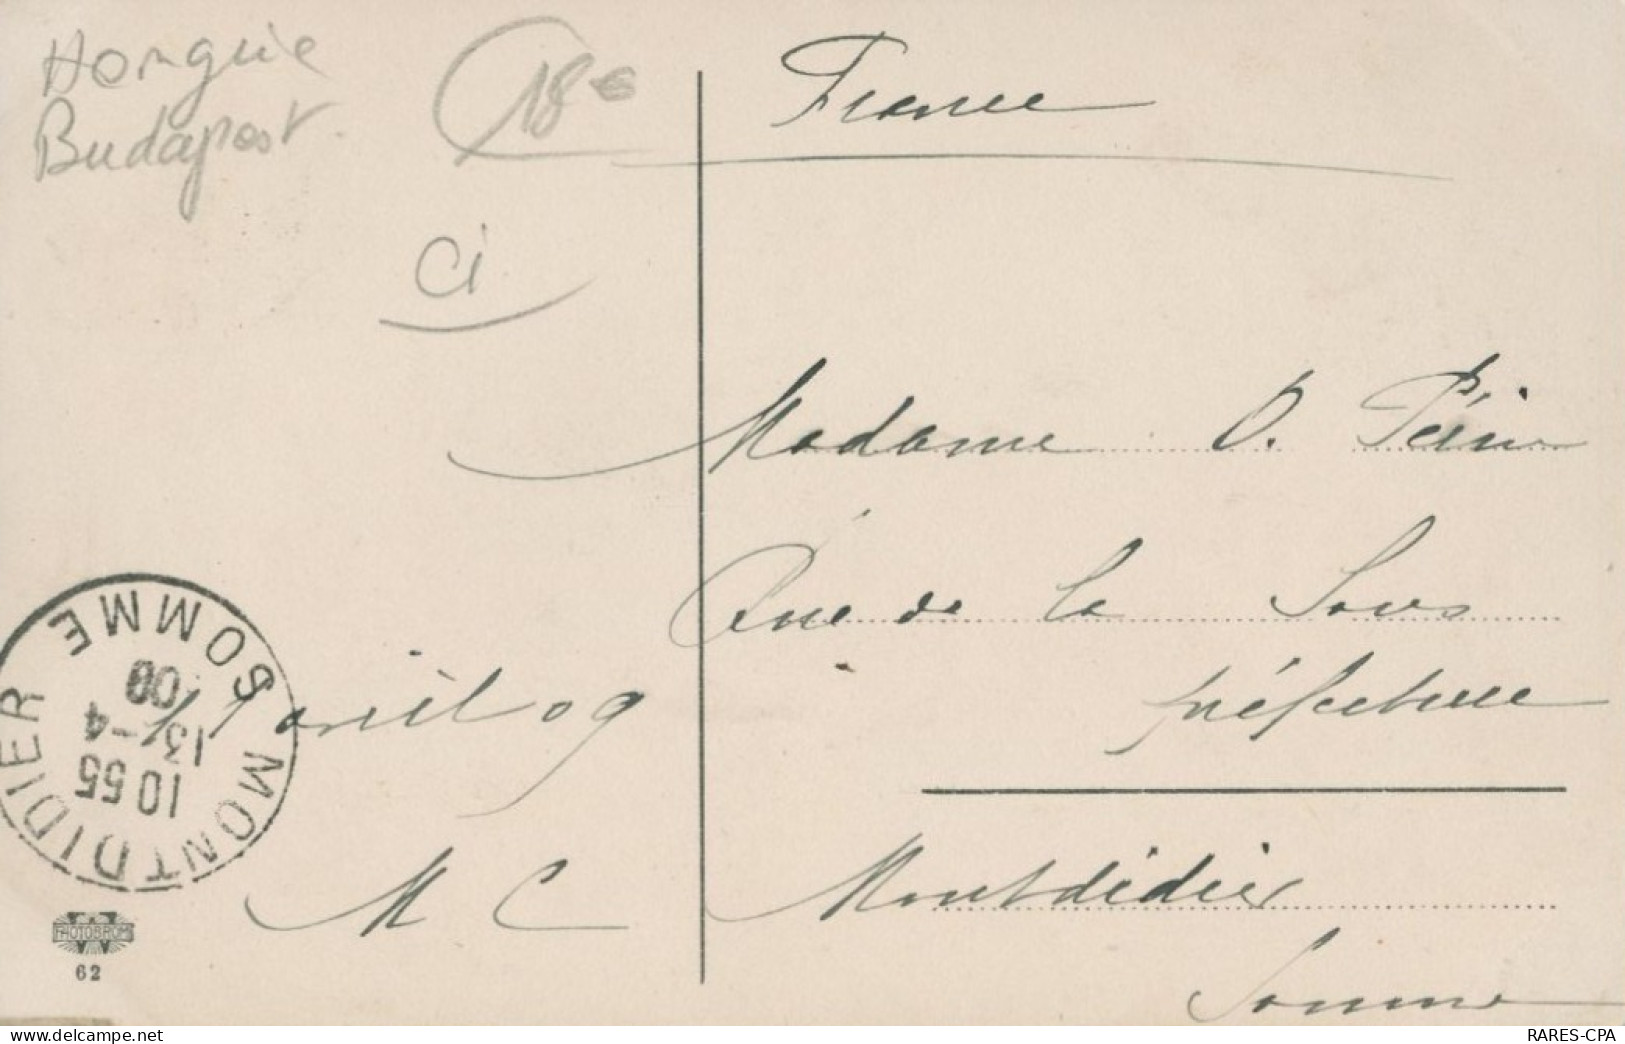 Hongrie
Budapest
18€
Ci
France
Madame O. Périn
Rue de la Sous
préfecture
Montdidier
Somme
Avril 09
M C
MONTDIDIER SOMME
10 55
13 -4
09
PHOTOBROM
62
RARES-CPA